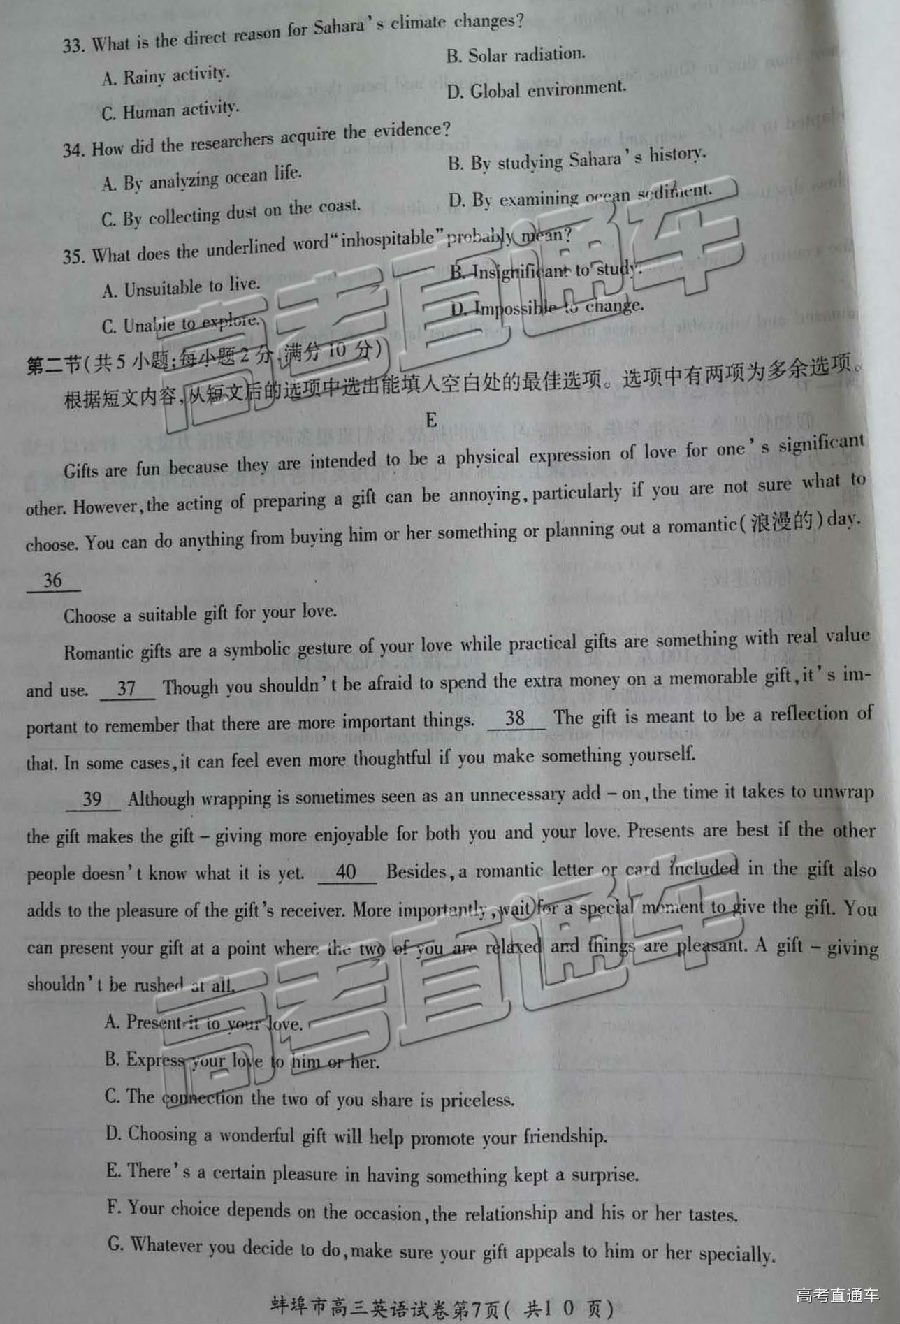 33. What is the direct reason for Sahara's climate changes?
A. Rainy activity.
B. Solar radiation.
C. Human activity.
D. Global environment.
34. How did the researchers acquire the evidence?
A. By analyzing ocean life.
B. By studying Sahara's history.
C. By collecting dust on the coast.
D. By examining ocean sediment.
35. What does the underlined word "inhospitable" probably mean?
A. Unsuitable to live.
B. Insignificant to study.
C. Unable to explore.
D. Impossible to change.
第二节(共5小题;每小题2分,满分10分)
根据短文内容,从短文后的选项中选出能填入空白处的最佳选项。选项中有两项为多余选项。
E
Gifts are fun because they are intended to be a physical expression of love for one's significant
other. However, the acting of preparing a gift can be annoying, particularly if you are not sure what to
choose. You can do anything from buying him or her something or planning out a romantic(浪漫的)day.
36
Choose a suitable gift for your love.
Romantic gifts are a symbolic gesture of your love while practical gifts are something with real value
and use. 37 Though you shouldn't be afraid to spend the extra money on a memorable gift, it's im-
portant to remember that there are more important things. 38 The gift is meant to be a reflection of
that. In some cases, it can feel even more thoughtful if you make something yourself.
39 Although wrapping is sometimes seen as an unnecessary add-on, the time it takes to unwrap
the gift makes the gift-giving more enjoyable for both you and your love. Presents are best if the other
people doesn't know what it is yet. 40 Besides, a romantic letter or card included in the gift also
adds to the pleasure of the gift's receiver. More importantly, wait for a special moment to give the gift. You
can present your gift at a point where the two of you are relaxed and things are pleasant. A gift-giving
shouldn't be rushed at all.
A. Present it to your love.
B. Express your love to him or her.
C. The connection the two of you share is priceless.
D. Choosing a wonderful gift will help promote your friendship.
E. There's a certain pleasure in having something kept a surprise.
F. Your choice depends on the occasion, the relationship and his or her tastes.
G. Whatever you decide to do, make sure your gift appeals to him or her specially.
蚌埠市高三英语试卷第7页(共10页)
高考直通车
高考直通车
高考直通车